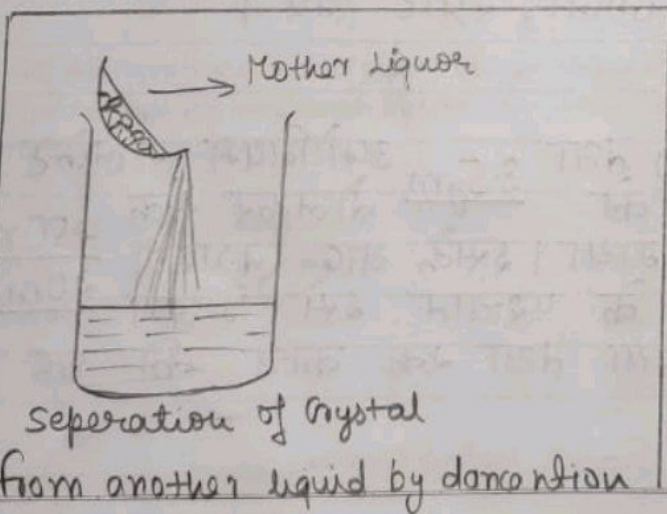 Mother Liquor
seperation of Crystal
from another liquid by dancantion